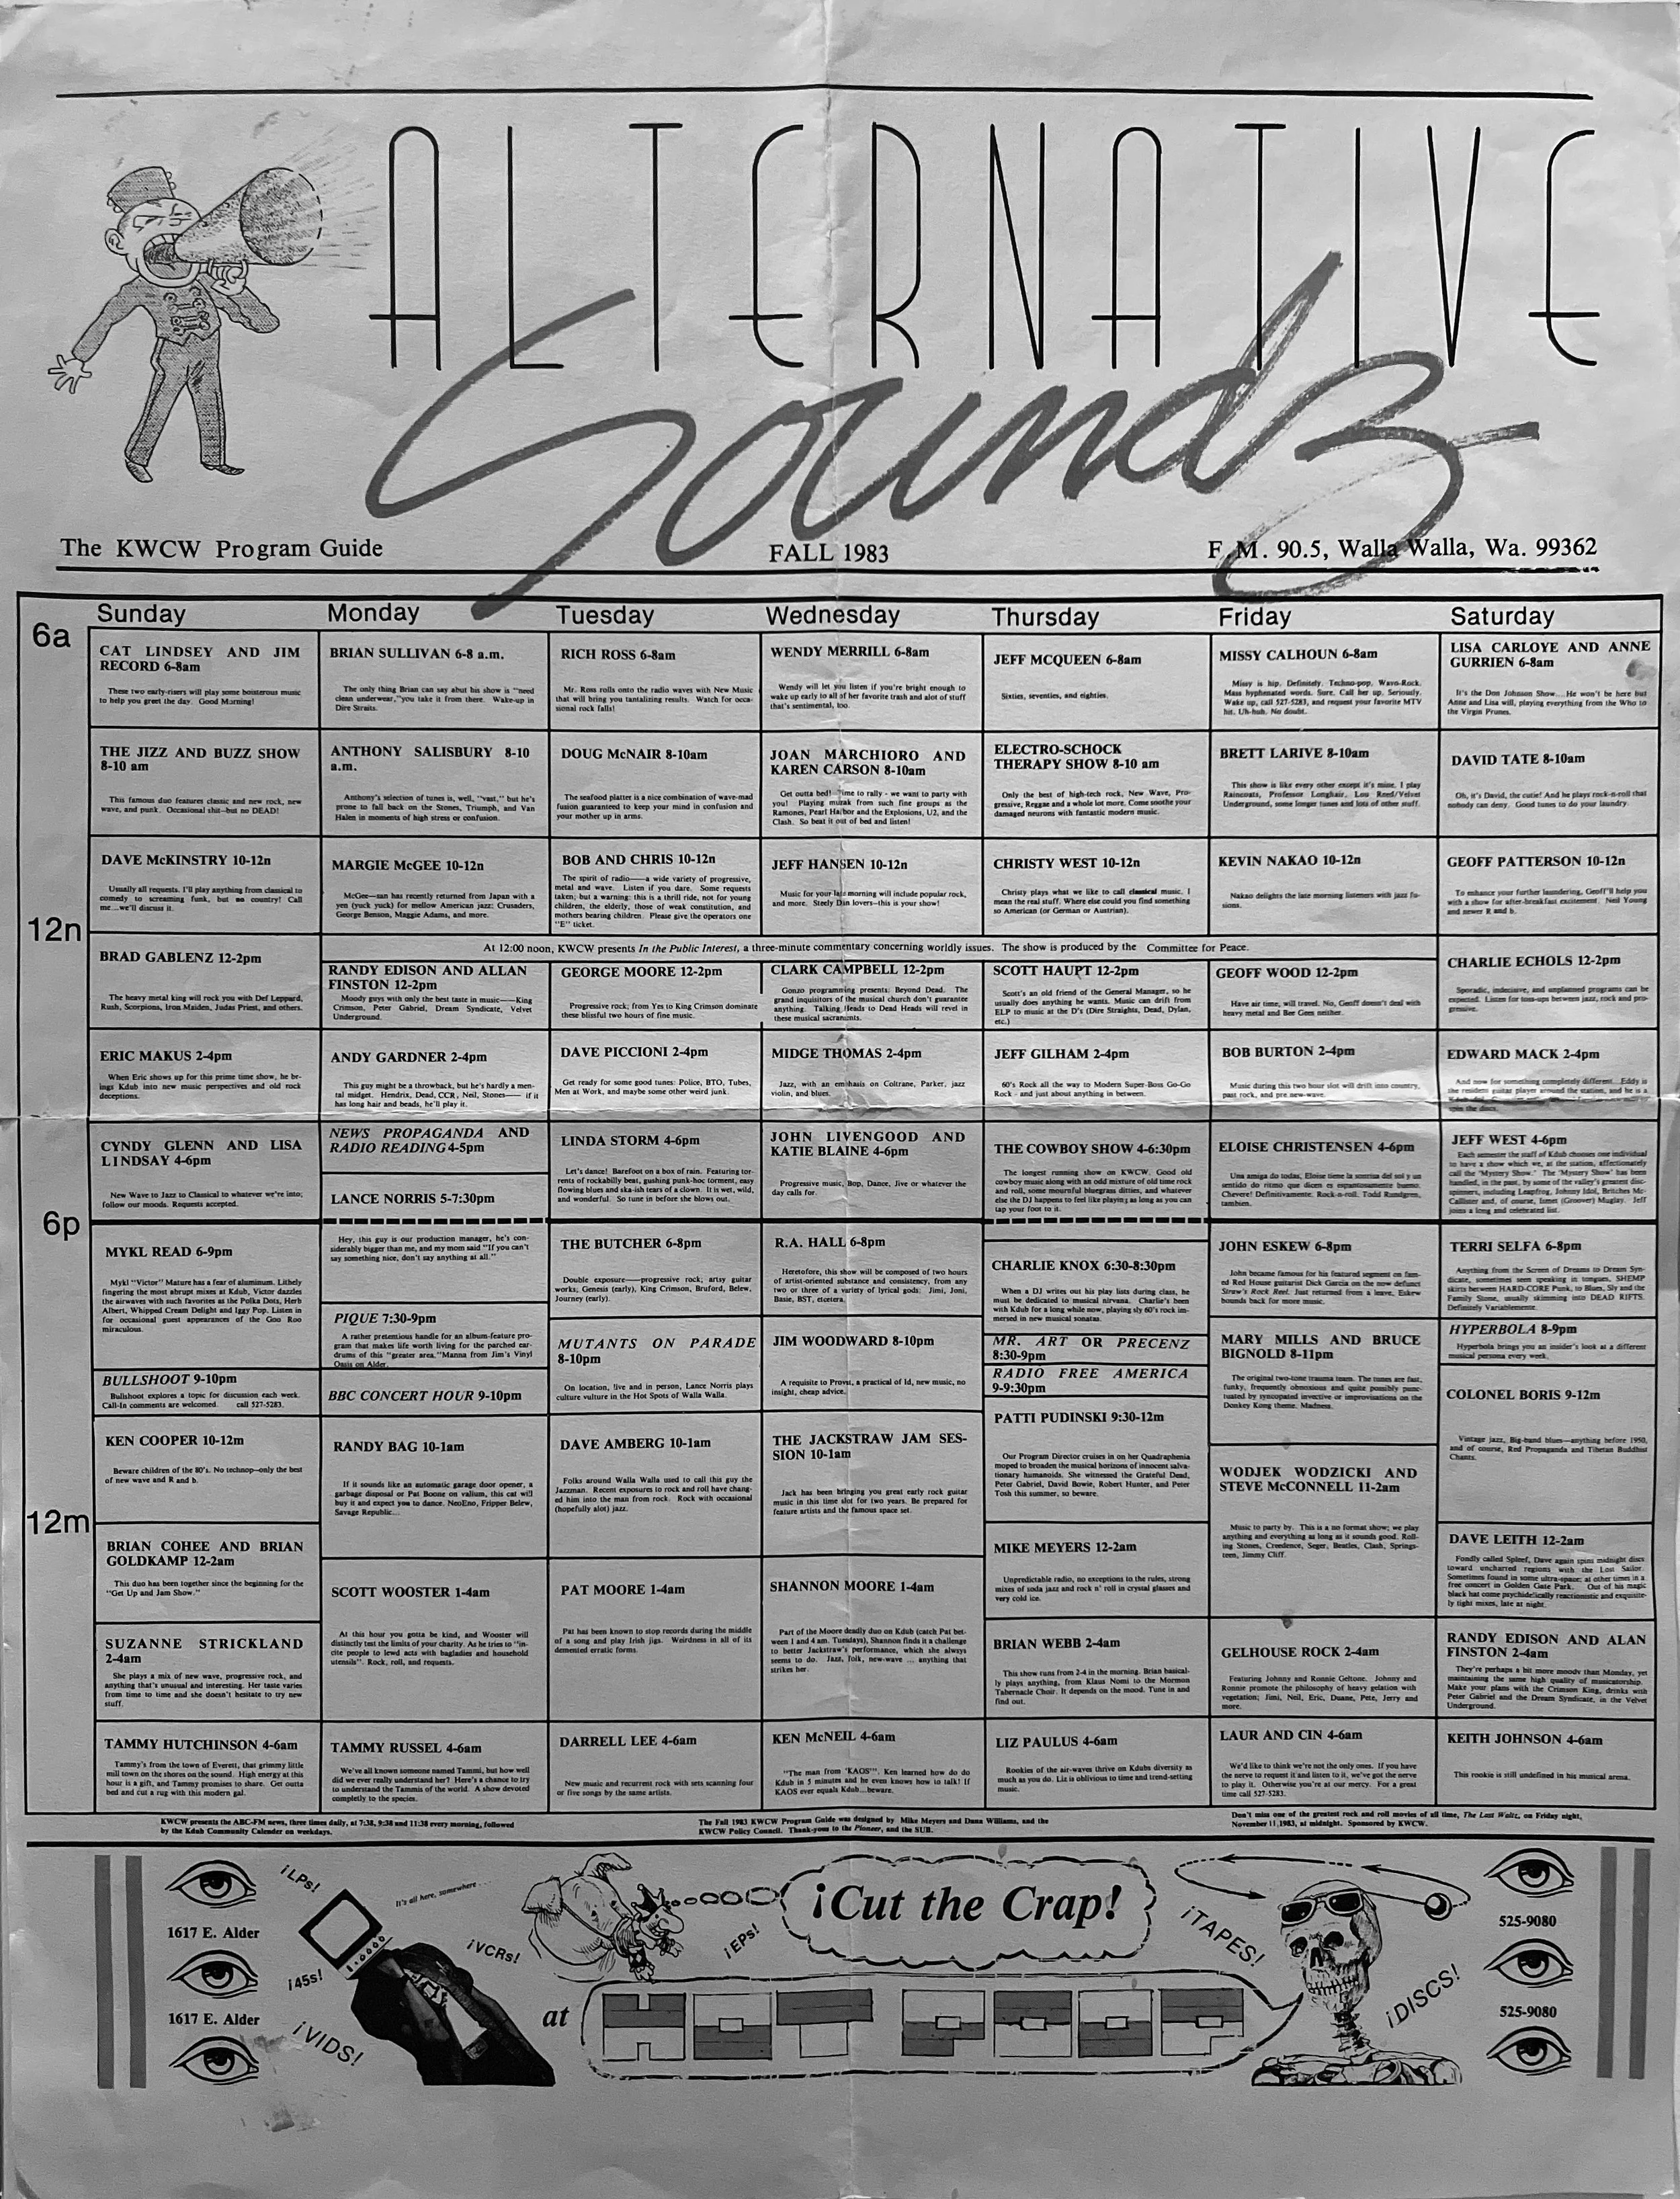 ALTERNATIVE
Sounds
The KWCW Program Guide
FALL 1983
F.M. 90.5, Walla Walla, Wa. 99362
Sunday
Monday
Tuesday
Wednesday
Thursday
Friday
Saturday
6a
CAT LINDSEY AND JIM
RECORD 6-8am
These two early-risers will play some boisterous music
to help you greet the day. Good Morning!
BRIAN SULLIVAN 6-8 a.m.
The only thing Brian can say abut his show is "need
clean underwear,"you take it from there. Wake-up in
Dire Straits.
RICH ROSS 6-8am
Mr. Ross rolls onto the radio waves with New Music
that will bring you tantalizing results. Watch for occa-
sional rock falls!
WENDY MERRILL 6-8am
Wendy will let you listen if you're bright enough to
wake up early to all of her favorite trash and alot of stuff
that's sentimental, too.
JEFF MCQUEEN 6-8am
Sixties, seventies, and eighties.
MISSY CALHOUN 6-8am
Missy is hip. Definitely. Techno-pop, Wavo-Rock.
Mass hyphenated words. Sure. Call her up. Seriously.
Wake up, call 527-5283, and request your favorite MTV
hit. Uh-huh. No doubt.
LISA CARLOYE AND ANNE
GURRIEN 6-8am
It's the Don Johnson Show....He won't be here but
Anne and Lisa will, playing everything from the Who to
the Virgin Prunes.
THE JIZZ AND BUZZ SHOW
8-10 am
This famous duo features classic and new rock, new
wave, and punk. Occasional chit--but no DEAD!
ANTHONY SALISBURY 8-10
a.m.
Anthony's selection of tunes is, well, "vast," but he's
prone to fall back on the Stones, Triumph, and Van
Halen in moments of high stress or confusion.
DOUG McNAIR 8-10am
The seafood platter is a nice combination of wave-mad
fusion guaranteed to keep your mind in confusion and
your mother up in arms.
JOAN MARCHIORO AND
KAREN CARSON 8-10am
Get outta bed! Time to rally - we want to party with
you! Playing muzak from such fine groups as the
Ramones, Pearl Harbor and the Explosions, U2, and the
Clash. So beat it out of bed and listen!
ELECTRO-SCHOCK
THERAPY SHOW 8-10 am
Only the best of high-tech rock, New Wave, Pro-
gressive, Reggae and a whole lot more. Come soothe your
damaged neurons with fantastic modern music.
BRETT LARIVE 8-10am
This show is like every other except it's mine. I play
Raincoats, Professor Longhair, Lou Reed/Velvet
Underground, some longer tunes and lots of other stuff.
DAVID TATE 8-10am
Oh, it's David, the cutie! And he plays rock-n-roll that
nobody can deny. Good tunes to do your laundry.
DAVE McKINSTRY 10-12n
Usually all requests. I'll play anything from classical to
comedy to screaming funk, but no country! Call
me...we'll discuss it.
MARGIE McGEE 10-12n
McGee—san has recently returned from Japan with a
yen (yuck yuck) for mellow American jazz: Crusaders,
George Benson, Maggie Adams, and more.
BOB AND CHRIS 10-12n
The spirit of radio—a wide variety of progressive,
metal and wave. Listen if you dare. Some requests
taken; but a warning: this is a thrill ride, not for young
children, the elderly, those of weak constitution, and
mothers bearing children. Please give the operators one
"E" ticket.
JEFF HANSEN 10-12n
Music for your late morning will include popular rock,
and more. Steely Dan lovers--this is your show!
CHRISTY WEST 10-12n
Christy plays what we like to call classical music. I
mean the real stuff. Where else could you find something
so American (or German or Austrian).
KEVIN NAKAO 10-12n
Nakao delights the late morning listeners with jazz fu-
sions.
GEOFF PATTERSON 10-12n
To enhance your further laundering, Geoff'll help you
with a show for after-breakfast excitement. Neil Young
and newer R and b.
12n
At 12:00 noon, KWCW presents In the Public Interest, a three-minute commentary concerning worldly issues. The show is produced by the Committee for Peace.
BRAD GABLENZ 12-2pm
The heavy metal king will rock you with Def Leppard,
Rush, Scorpions, Iron Maiden, Judas Priest, and others.
RANDY EDISON AND ALLAN
FINSTON 12-2pm
Moody guys with only the best taste in music——King
Crimson, Peter Gabriel, Dream Syndicate, Velvet
Underground.
GEORGE MOORE 12-2pm
Progressive rock; from Yes to King Crimson dominate
these blissful two hours of fine music.
CLARK CAMPBELL 12-2pm
Gonzo programming presents: Beyond Dead. The
grand inquisitors of the musical church don't guarantee
anything. Talking Heads to Dead Heads will revel in
these musical sacraments.
SCOTT HAUPT 12-2pm
Scott's an old friend of the General Manager, so he
usually does anything he wants. Music can drift from
ELP to music at the D's (Dire Straights, Dead, Dylan,
etc.)
GEOFF WOOD 12-2pm
Have air time, will travel. No, Geoff doesn't deal with
heavy metal and Bee Gees neither.
CHARLIE ECHOLS 12-2pm
Sporadic, indecisive, and unplanned programs can be
expected. Listen for toss-ups between jazz, rock and pro-
gressive.
ERIC MAKUS 2-4pm
When Eric shows up for this prime time show, he br-
ings Kdub into new music perspectives and old rock
deceptions.
ANDY GARDNER 2-4pm
This guy might be a throwback, but he's hardly a men-
tal midget. Hendrix, Dead, CCR, Neil, Stones—— if it
has long hair and beads, he'll play it.
DAVE PICCIONI 2-4pm
Get ready for some good tunes: Police, BTO, Tubes,
Men at Work, and maybe some other weird junk.
MIDGE THOMAS 2-4pm
Jazz, with an emphasis on Coltrane, Parker, jazz
violin, and blues.
JEFF GILHAM 2-4pm
60's Rock all the way to Modern Super-Boss Go-Go
Rock - and just about anything in between.
BOB BURTON 2-4pm
Music during this two hour slot will drift into country,
past rock, and pre new-wave.
EDWARD MACK 2-4pm
And now for something completely different...Eddy is
the resident guitar player around the station, and he is a
spin the discs.
CYNDY GLENN AND LISA
LINDSAY 4-6pm
New Wave to Jazz to Classical to whatever we're into;
follow our moods. Requests accepted.
NEWS PROPAGANDA AND
RADIO READING 4-5pm
LANCE NORRIS 5-7:30pm
Hey, this guy is our production manager, he's con-
siderably bigger than me, and my mom said "If you can't
say something nice, don't say anything at all."
LINDA STORM 4-6pm
Let's dance! Barefoot on a box of rain. Featuring tor-
rents of rockabilly beat, gushing punk-hoc torment, easy
flowing blues and ska-ish tears of a clown. It is wet, wild,
and wonderful. So tune in before she blows out.
JOHN LIVENGOOD AND
KATIE BLAINE 4-6pm
Progressive music, Bop, Dance, Jive or whatever the
day calls for.
THE COWBOY SHOW 4-6:30pm
The longest running show on KWCW. Good old
cowboy music along with an odd mixture of old time rock
and roll, some mournful bluegrass ditties, and whatever
else the DJ happens to feel like playing as long as you can
tap your foot to it.
ELOISE CHRISTENSEN 4-6pm
Una amiga do todas, Eloise tiene la sonrisa del sol y un
sentido do ritmo que dicen es espantosamente bueno.
Chevere! Definitivamente. Rock-n-roll. Todd Rundgren,
tambien.
JEFF WEST 4-6pm
Each semester the staff of Kdub chooses one individual
to have a show which we, at the station, affectionately
call the 'Mystery Show.' The 'Mystery Show' has been
handled, in the past, by some of the valley's greatest disc-
spinners, including Leapfrog, Johnny Idol, Britches Mc-
Callister and, of course, Ismet (Groover) Muglay. Jeff
joins a long and celebrated list.
6p
MYKL READ 6-9pm
Mykl "Victor" Mature has a fear of aluminum. Lithely
fingering the most abrupt mixes at Kdub, Victor dazzles
the airwaves with such favorites as the Polka Dots, Herb
Albert, Whipped Cream Delight and Iggy Pop. Listen in
for occasional guest appearances of the Goo Roo
miraculous.
PIQUE 7:30-9pm
A rather pretentious handle for an album-feature pro-
gram that makes life worth living for the parched ear-
drums of this "greater area."Manna from Jim's Vinyl
Oasis on Alder.
THE BUTCHER 6-8pm
Double exposure——progressive rock; artsy guitar
works; Genesis (early), King Crimson, Bruford, Belew,
Journey (early).
R.A. HALL 6-8pm
Heretofore, this show will be composed of two hours
of artist-oriented substance and consistency, from any
two or three of a variety of lyrical gods: Jimi, Joni,
Basie, BST, etcetera.
CHARLIE KNOX 6:30-8:30pm
When a DJ writes out his play lists during class, he
must be dedicated to musical nirvana. Charlie's been
with Kdub for a long while now, playing sly 60's rock im-
mersed in new musical sonatas.
JOHN ESKEW 6-8pm
John became famous for his featured segment on fam-
ed Red House guitarist Dick Garcia on the now defunct
Straw's Rock Reel. Just returned from a leave, Eskew
bounds back for more music.
TERRI SELFA 6-8pm
Anything from the Screen of Dreams to Dream Syn-
dicate, sometimes seen speaking in tongues, SHEMP
skirts between HARD-CORE Punk, to Blues, Sly and the
Family Stone, usually skimming into DEAD RIFTS.
Definitely Variablemente.
MUTANTS ON PARADE
8-10pm
On location, live and in person, Lance Norris plays
culture vulture in the Hot Spots of Walla Walla.
JIM WOODWARD 8-10pm
A requisite to Provst, a practical of Id, new music, no
insight, cheap advice.
MR. ART OR PRECENZ
8:30-9pm
RADIO FREE AMERICA
9-9:30pm
MARY MILLS AND BRUCE
BIGNOLD 8-11pm
The original two-tone trauma team. The tunes are fast,
funky, frequently obnoxious and quite possibly punc-
tuated by syncopated invective or improvisations on the
Donkey Kong theme. Madness.
HYPERBOLA 8-9pm
Hyperbola brings you an insider's look at a different
musical persona every week.
BULLSHOOT 9-10pm
Bullshoot explores a topic for discussion each week.
Call-In comments are welcomed. call 527-5283.
BBC CONCERT HOUR 9-10pm
COLONEL BORIS 9-12m
Vintage jazz, Big-band blues—anything before 1950,
and of course, Red Propaganda and Tibetan Buddhist
Chants.
KEN COOPER 10-12m
Beware children of the 80's. No technop--only the best
of new wave and R and b.
RANDY BAG 10-1am
If it sounds like an automatic garage door opener, a
garbage disposal or Pat Boone on valium, this cat will
buy it and expect you to dance. NeoEno, Fripper Belew,
Savage Republic...
DAVE AMBERG 10-1am
Folks around Walla Walla used to call this guy the
Jazzman. Recent exposures to rock and roll have chang-
ed him into the man from rock. Rock with occasional
(hopefully alot) jazz.
THE JACKSTRAW JAM SES-
SION 10-1am
Jack has been bringing you great early rock guitar
music in this time slot for two years. Be prepared for
feature artists and the famous space set.
PATTI PUDINSKI 9:30-12m
Our Program Director cruises in on her Quadraphenia
moped to broaden the musical horizons of innocent salva-
tionary humanoids. She witnessed the Grateful Dead,
Peter Gabriel, David Bowie, Robert Hunter, and Peter
Tosh this summer, so beware.
WODJEK WODZICKI AND
STEVE McCONNELL 11-2am
Music to party by. This is a no format show; we play
anything and everything as long as it sounds good. Roll-
ing Stones, Creedence, Seger, Beatles, Clash, Springs-
teen, Jimmy Cliff.
12m
BRIAN COHEE AND BRIAN
GOLDKAMP 12-2am
This duo has been together since the beginning for the
"Get Up and Jam Show."
SCOTT WOOSTER 1-4am
At this hour you gotta be kind, and Wooster will
distinctly test the limits of your charity. As he tries to "in-
cite people to lewd acts with bagladies and household
utensils". Rock, roll, and requests.
PAT MOORE 1-4am
Pat has been known to stop records during the middle
of a song and play Irish jigs. Weirdness in all of its
demented erratic forms.
SHANNON MOORE 1-4am
Part of the Moore deadly duo on Kdub (catch Pat bet-
ween 1 and 4 am. Tuesdays), Shannon finds it a challenge
to better Jackstraw's performance, which she always
seems to do. Jazz, folk, new-wave ... anything that
strikes her.
MIKE MEYERS 12-2am
Unpredictable radio, no exceptions to the rules, strong
mixes of soda jazz and rock n' roll in crystal glasses and
very cold ice.
DAVE LEITH 12-2am
Fondly called Spleef, Dave again spins midnight discs
toward uncharred regions with the Lost Sailor.
Sometimes found in some ultra-space; at other times in a
free concert in Golden Gate Park. Out of his magic
black hat come psychidelically reactionistic and exquisite-
ly tight mixes, late at night.
SUZANNE STRICKLAND
2-4am
She plays a mix of new wave, progressive rock, and
anything that's unusual and interesting. Her taste varies
from time to time and she doesn't hesitate to try new
stuff.
BRIAN WEBB 2-4am
This show runs from 2-4 in the morning. Brian basical-
ly plays anything, from Klaus Nomi to the Mormon
Tabernacle Choir. It depends on the mood. Tune in and
find out.
GELHOUSE ROCK 2-4am
Featuring Johnny and Ronnie Geltone. Johnny and
Ronnie promote the philosophy of heavy gelation with
vegetation; Jimi, Neil, Eric, Duane, Pete, Jerry and
more.
RANDY EDISON AND ALAN
FINSTON 2-4am
They're perhaps a bit more moody than Monday, yet
maintaining the same high quality of musicatorship.
Make your plans with the Crimson King, drinks with
Peter Gabriel and the Dream Syndicate, in the Velvet
Underground.
TAMMY HUTCHINSON 4-6am
Tammy's from the town of Everett, that grimmy little
mill town on the shores on the sound. High energy at this
hour is a gift, and Tammy promises to share. Get outta
bed and cut a rug with this modern gal.
TAMMY RUSSEL 4-6am
We've all known someone named Tammi, but how well
did we ever really understand her? Here's a chance to try
to understand the Tammis of the world. A show devoted
completly to the species.
DARRELL LEE 4-6am
New music and recurrent rock with sets scanning four
or five songs by the same artists.
KEN McNEIL 4-6am
"The man from 'KAOS'". Ken learned how do do
Kdub in 5 minutes and he even knows how to talk! If
KAOS ever equals Kdub...beware.
LIZ PAULUS 4-6am
Rookies of the air-waves thrive on Kdubs diversity as
much as you do. Liz is oblivious to time and trend-setting
music.
LAUR AND CIN 4-6am
We'd like to think we're not the only ones. If you have
the nerve to request it and listen to it, we've got the nerve
to play it. Otherwise you're at our mercy. For a great
time call 527-5283.
KEITH JOHNSON 4-6am
This rookie is still undefined in his musical arena.
KWCW presents the ABC-FM news, three times daily, at 7:38, 9:38 and 11:38 every morning, followed
by the Kdub Community Calender on weekdays.
The Fall 1983 KWCW Program Guide was designed by Mike Meyers and Dana Williams, and the
KWCW Policy Council. Thank-yous to the Pioneer, and the SUB.
Don't miss one of the greatest rock and roll movies of all time, The Last Waltz, on Friday night,
November 11,1983, at midnight. Sponsored by KWCW.
1617 E. Alder
1617 E. Alder
¡LPs!
It's all here, somewhere...
¡45s!
¡VCRs!
¡VIDS!
¡EPs!
¡Cut the Crap!
at
HOT POOP
¡TAPES!
¡DISCS!
525-9080
525-9080